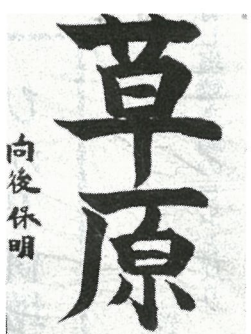 草原
向後保明